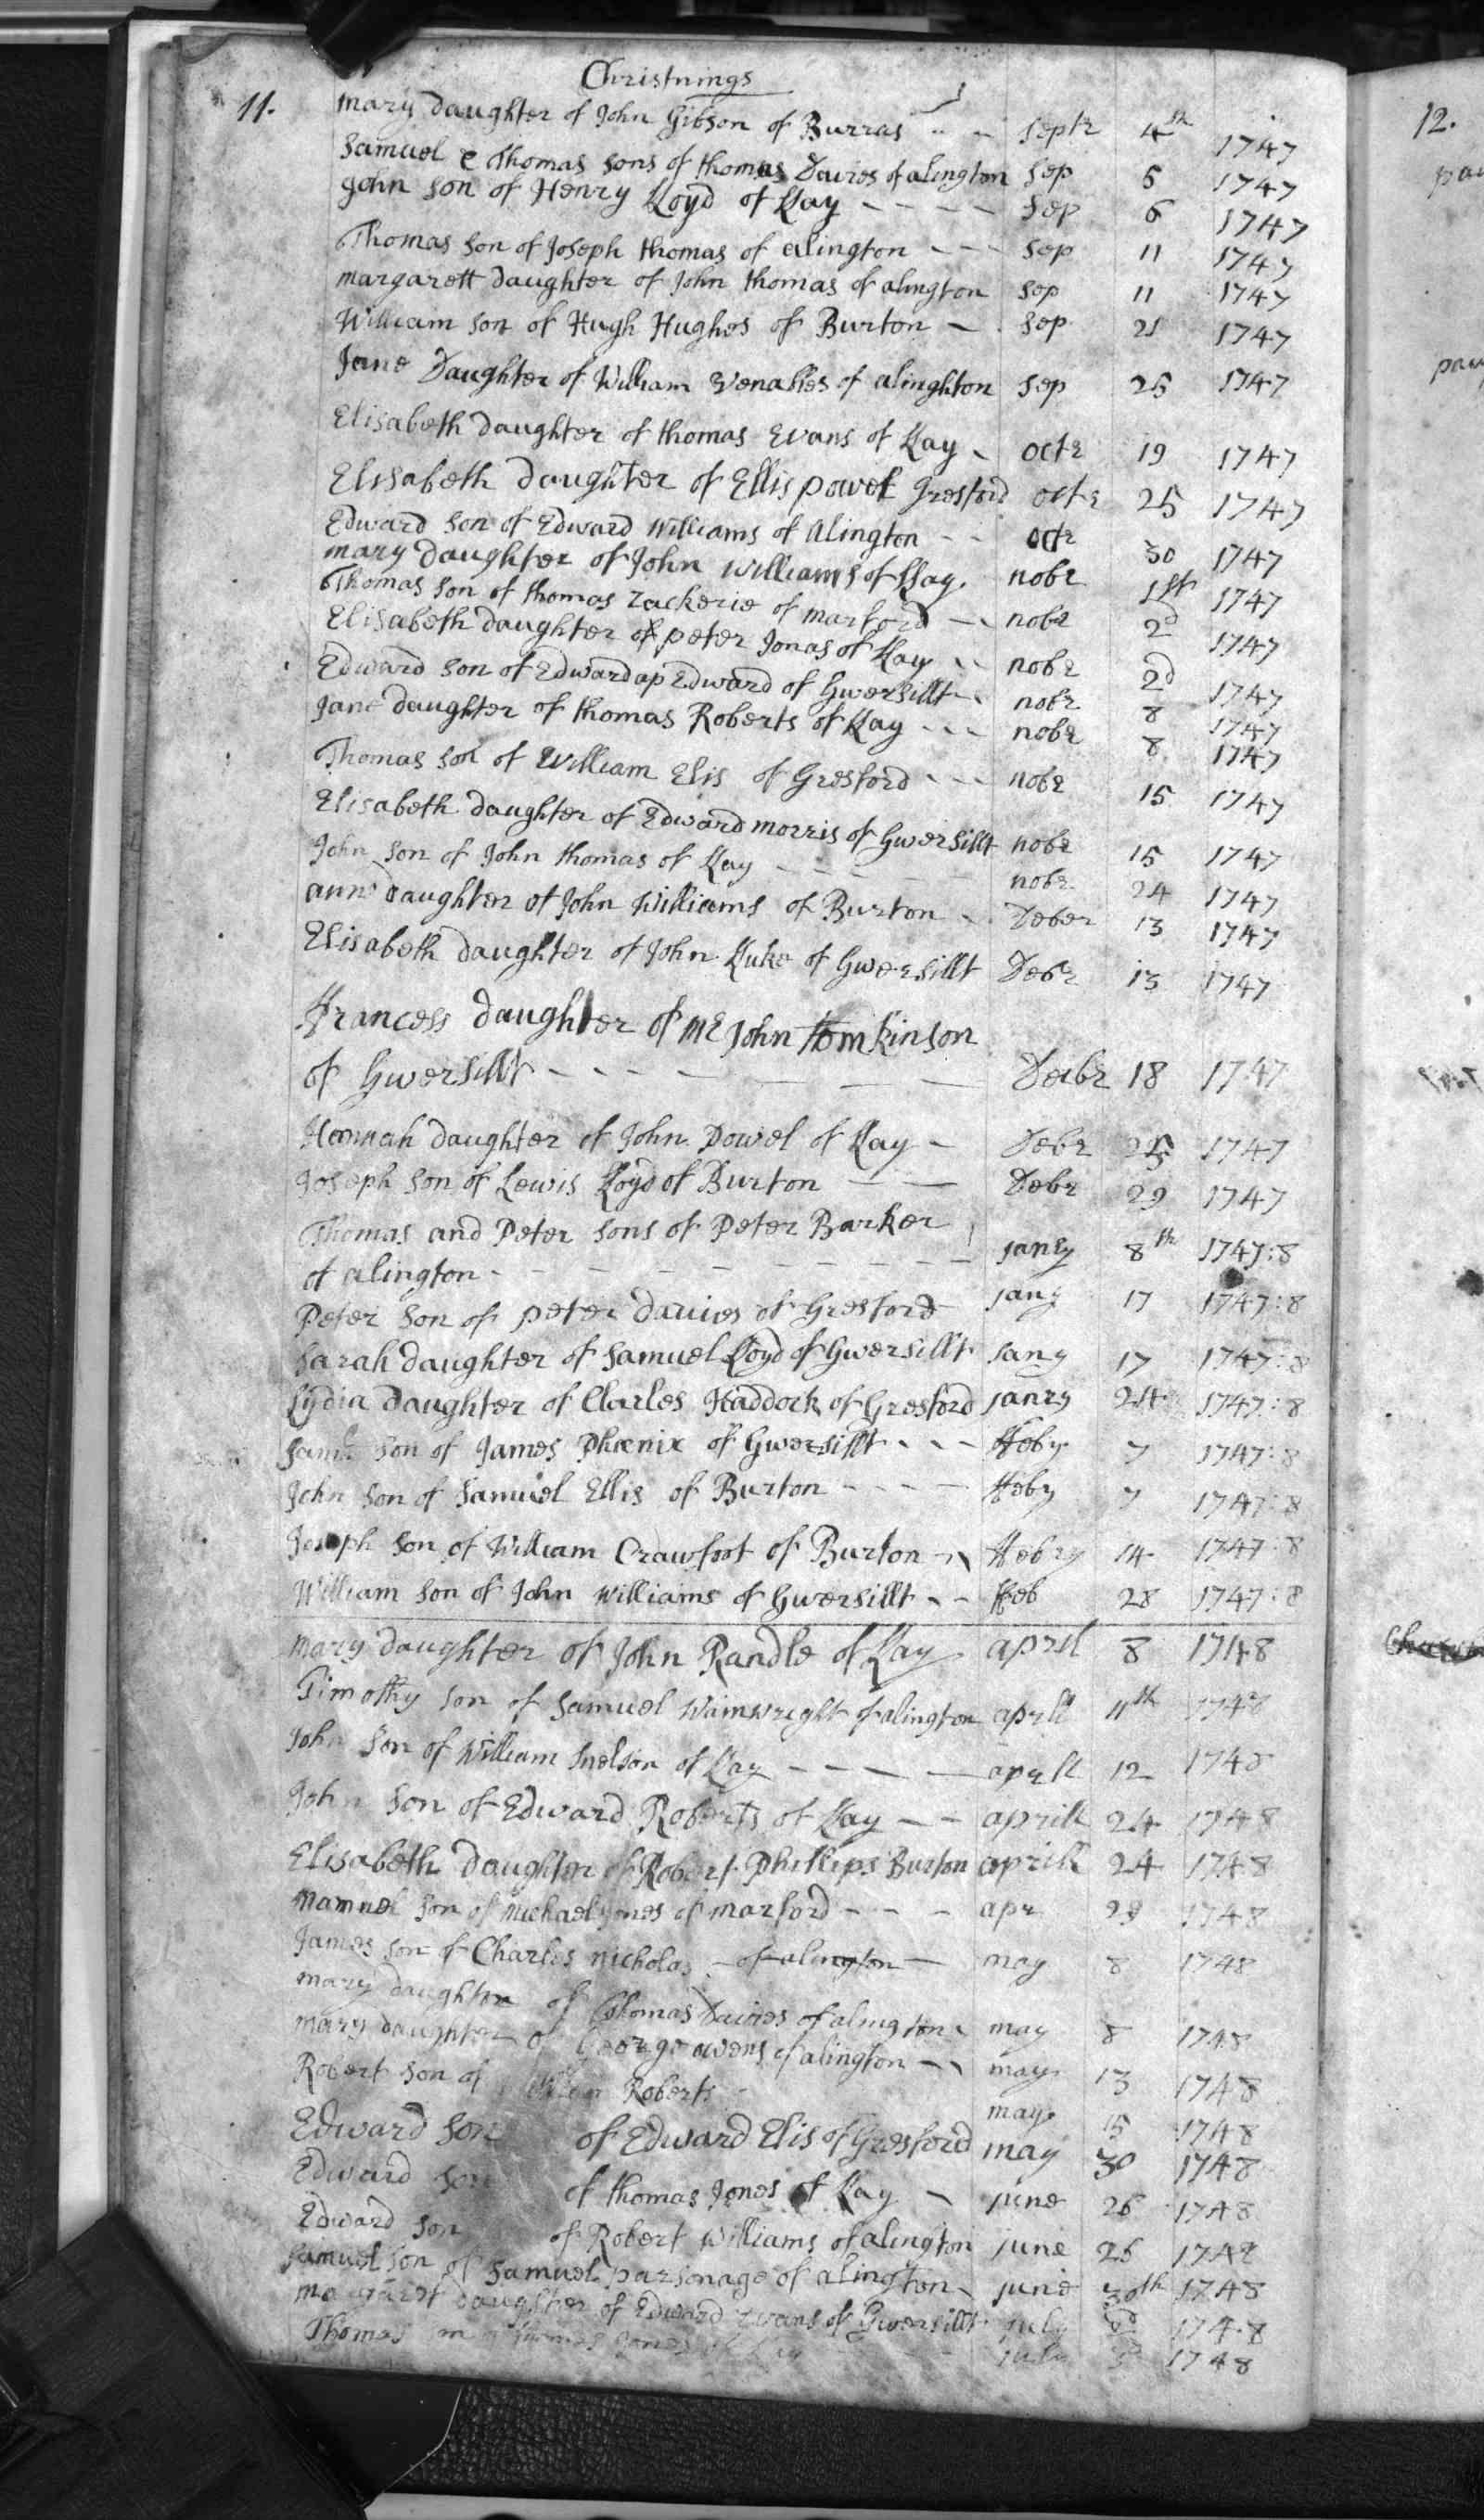 Christnings
11.
mary daughter of John Gibson of Burras - - Septr 4th 1747
Samuel & Thomas sons of thomas Davies of alington Sep 5 1747
John son of Henry Lloyd of Llay - - - - Sep 6 1747
Thomas son of Joseph thomas of alington - - - Sep 11 1747
margarett daughter of John thomas of alington Sep 11 1747
William son of Hugh Hughes of Burton - Sep 21 1747
Jane Daughter of William Venables of alinghton Sep 25 1747
Elisabeth daughter of thomas Evans of Llay - octr 19 1747
Elisabeth daughter of Ellis powel Gresford octr 25 1747
Edward son of Edward Williams of Alington - - octr 30 1747
mary daughter of John Williams of Llay. nobr 1st 1747
Thomas son of thomas Zackerie of marford - - nobr 2d 1747
Elisabeth daughter of peter Jonas of Llay - - nobr 2d 1747
Edward son of Edward ap Edward of Gwersillt - nobr 8 1747
Jane daughter of thomas Roberts of Llay - - - nobr 8 1747
Thomas son of William Elis of Gresford - - - nobr 15 1747
Elisabeth daughter of Edward morris of Gwersillt nobr 15 1747
John son of John thomas of Llay - - - - nobr 24 1747
ann daughter of John Williams of Burton - Deber 13 1747
Elisabeth daughter of John Luke of Gwersillt Debr 13 1747
Francess daughter of Mr John Tomkinson
of Gwersillt - - - - - - - Decbr 18 1747
Hannah daughter of John Powel of Llay - Debr 25 1747
Joseph son of Lewis Lloyd of Burton - - Debr 29 1747
Thomas and Peter sons of Peter Barker
of alington - - - - - - - - - janry 8th 1747:8
Peter son of peter Davies of Gresford jany 17 1747:8
Sarah daughter of Samuel Lloyd of Gwersillt jany 17 1747:8
Lydia daughter of Charles Haddock of Gresford janry 24 1747:8
Saml. son of James Phœnix of Gwersillt - - - ffeby 7 1747:8
John son of Samuel Ellis of Burton - - - - ffeby 7 1747:8
Joseph son of William Crawfoot of Burton - - ffebry 14 1747:8
William son of John Williams of Gwersillt - - ffeb 28 1747:8
mary daughter of John Randle of Llay april 8 1748
Timothy son of Samuel Wainwright of alington aprill 11th 1748
John son of William Snelson of Llay - - - - aprill 12 1748
John son of Edward Roberts of Llay - - aprill 24 1748
Elisabeth daughter of Robert Phillips Burton aprill 24 1748
son of michael Jones of marford - - - apr 1748
James son of Charles nicholas - of alington - may 8 1748
mary daughter of Thomas Davies of alington - may 8 1748
mary daughter of George owens of alington - - may 13 1748
Robert son of Roberts may 15 1748
Edward son of Edward Elis of Gresford may 30 1748
Edward son of thomas Jones of Llay - june 26 1748
Edward son of Robert Williams of alington june 26 1748
Samuel son of Samuel parsonage of alington - june 30th 1748
margaret daughter of Edward Evans of Gwersillt july 1748
Thomas Jones of Llay july 1748
12.